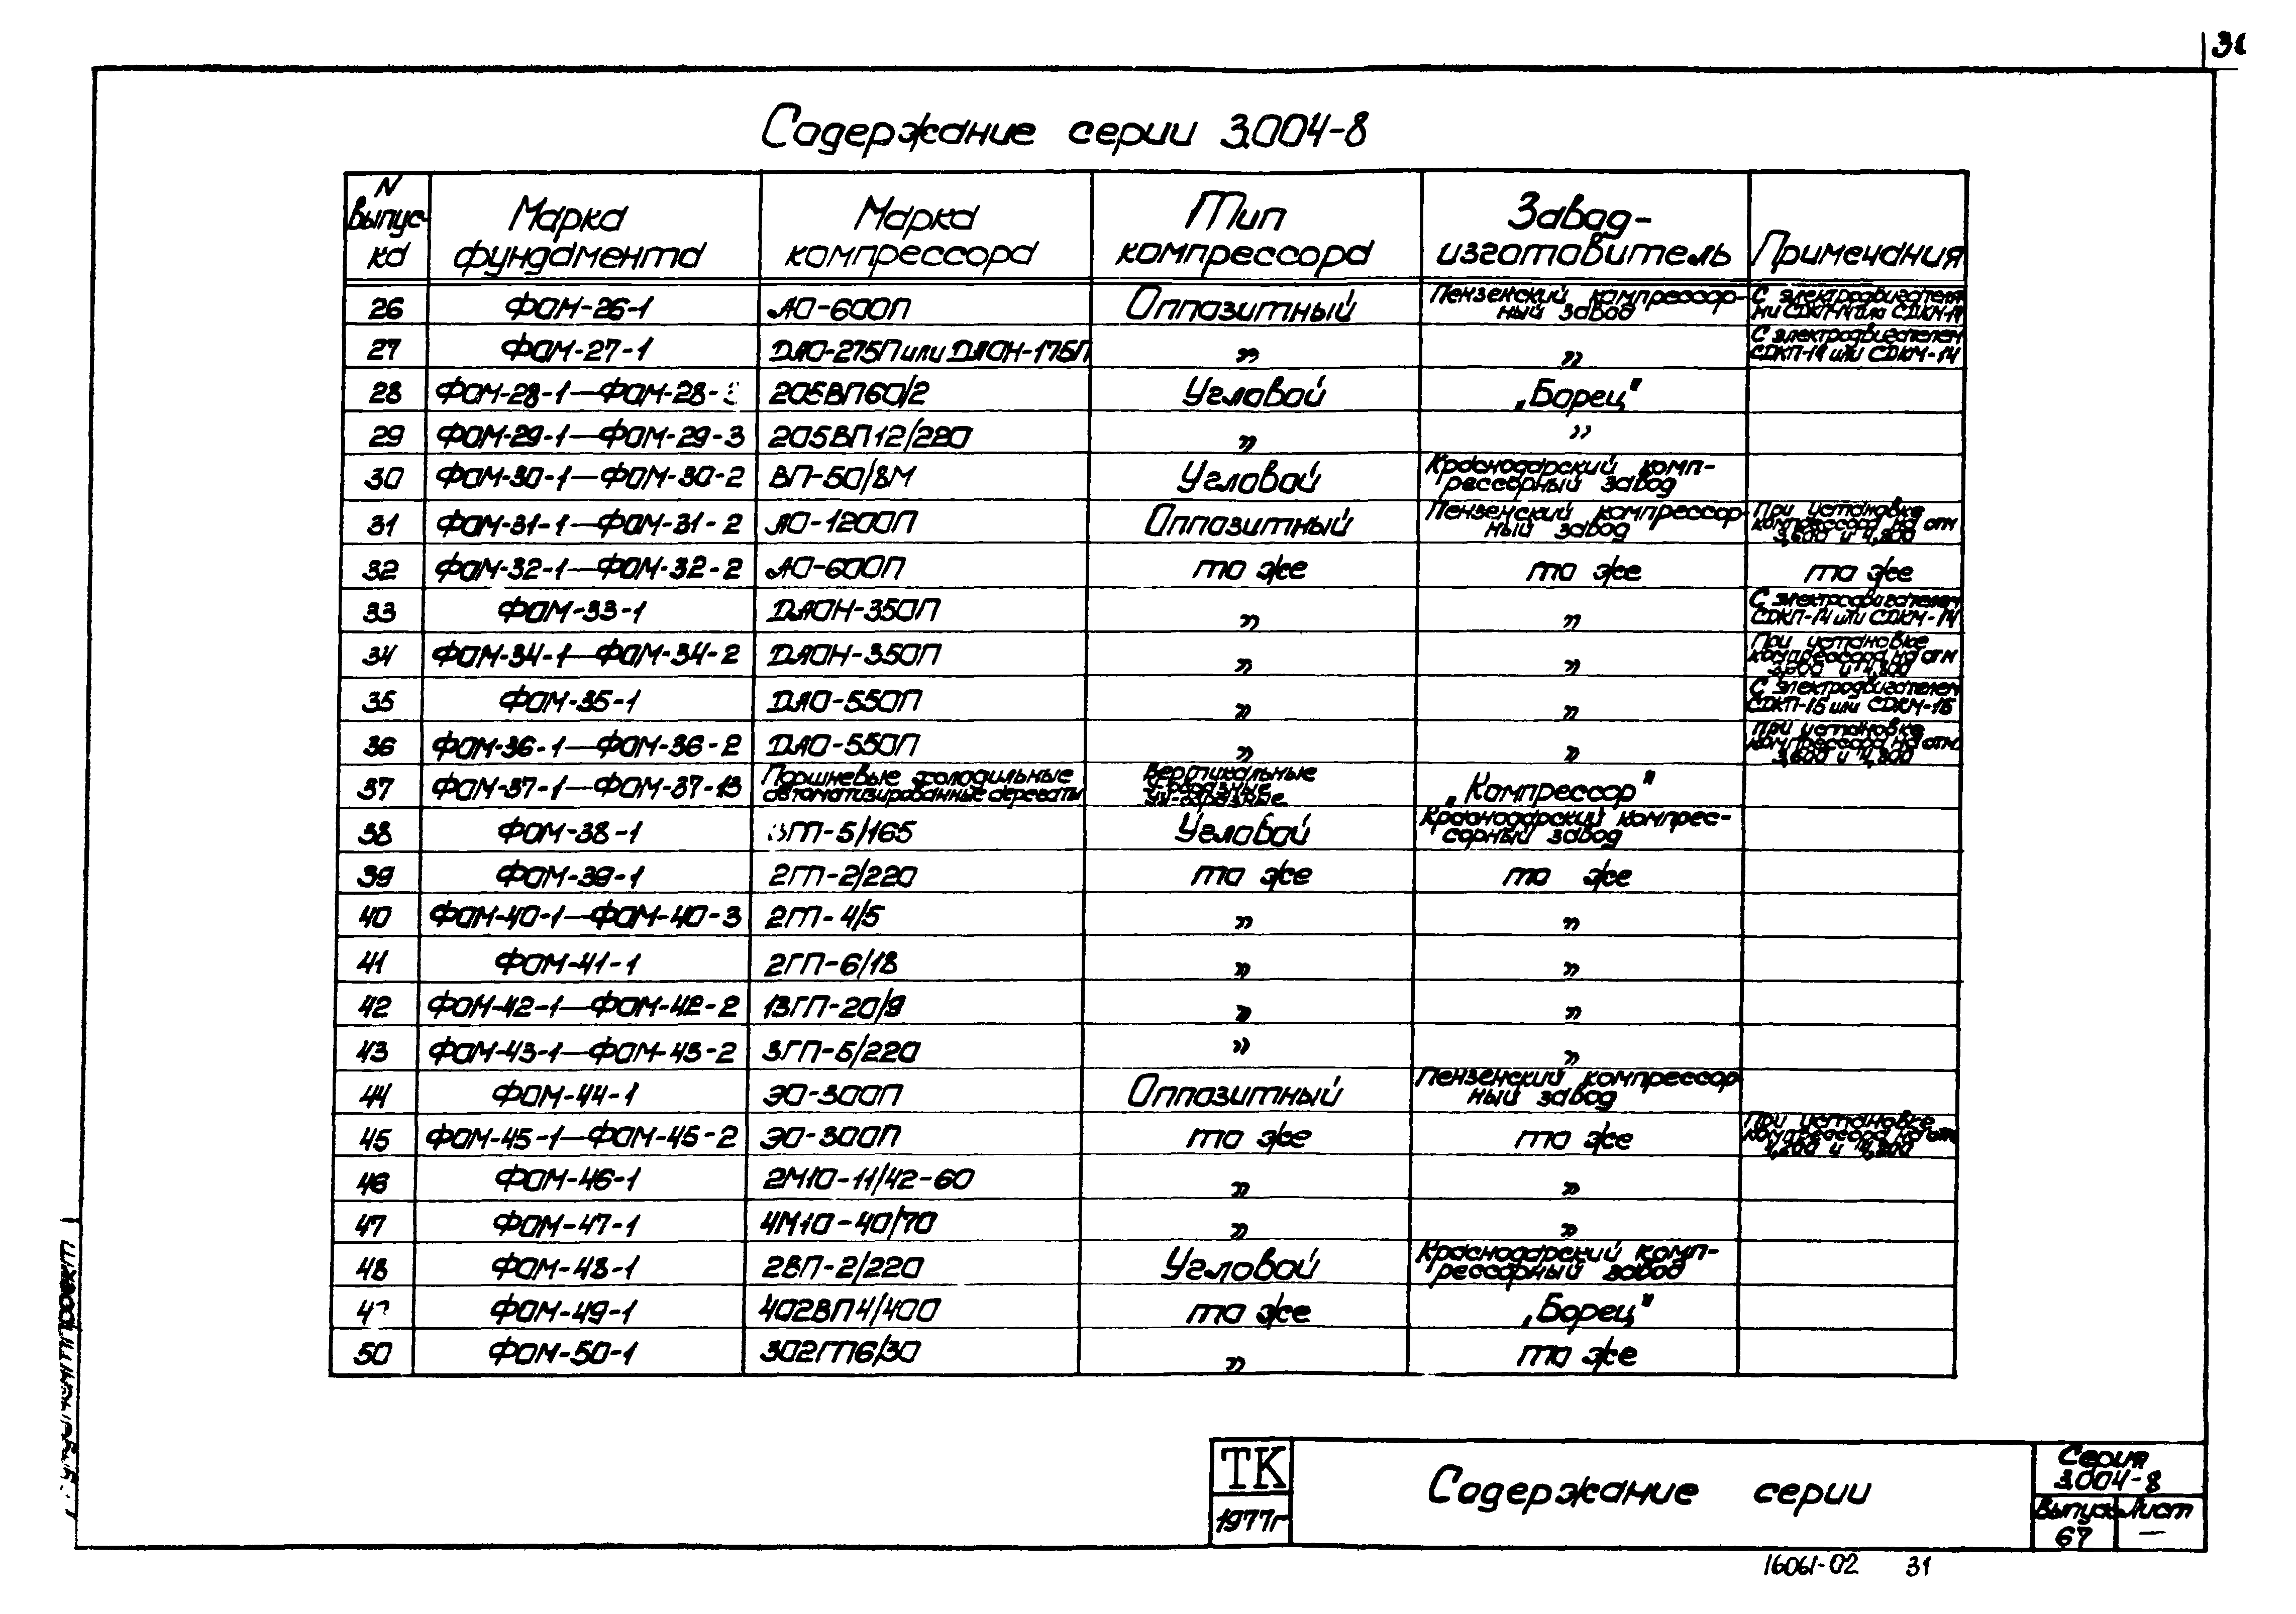 31
Содержание серии 3.004-8
N выпус-ка | Марка фундамента | Марка компрессора | Тип компрессора | Завод-изготовитель | Примечания
26 | ФОМ-26-1 | АО-600П | Оппозитный | Пензенский компрессор-ный завод | С электродвигателя-ми СДКП-14 или СДКМ-14
27 | ФОМ-27-1 | ДАО-275П или ДАОН-175П | „ | „ | С электродвигателем СДКП-14 или СДКМ-14
28 | ФОМ-28-1—ФОМ-28- | 205ВП60/2 | Угловой | „Борец"
29 | ФОМ-29-1—ФОМ-29-3 | 205ВП12/220 | „ | „
30 | ФОМ-30-1—ФОМ-30-2 | ВП-50/8М | Угловой | Краснодарский комп-рессорный завод
31 | ФОМ-31-1—ФОМ-31-2 | АО-1200П | Оппозитный | Пензенский компрессор-ный завод | При установке компрессора на отм 3,600 и 4,800
32 | ФОМ-32-1—ФОМ-32-2 | АО-600П | то же | то же | то же
33 | ФОМ-33-1 | ДАОН-350П | „ | „ | С электродвигателем СДКП-14 или СДКМ-14
34 | ФОМ-34-1—ФОМ-34-2 | ДАОН-350П | „ | „ | При установке компрессора на отм 3,600 и 4,800
35 | ФОМ-35-1 | ДАО-550П | „ | „ | С электродвигателем СДКП-15 или СДКМ-15
36 | ФОМ-36-1—ФОМ-36-2 | ДАО-550П | „ | „ | При установке компрессора на отм. 3,600 и 4,800
37 | ФОМ-37-1—ФОМ-37-13 | Поршневые холодильные автоматизированные агрегаты | Вертикальные У-образные УУ-образные | „Компрессор"
38 | ФОМ-38-1 | ГП-5/165 | Угловой | Краснодарский компрес-сорный завод
39 | ФОМ-39-1 | 2ГП-2/220 | то же | то же
40 | ФОМ-40-1—ФОМ-40-3 | 2ГП-4/5 | „ | „
41 | ФОМ-41-1 | 2ГП-6/18 | „ | „
42 | ФОМ-42-1—ФОМ-42-2 | 13ГП-20/9 | „ | „
43 | ФОМ-43-1—ФОМ-43-2 | 3ГП-5/220 | „ | „
44 | ФОМ-44-1 | ЭО-300П | Оппозитный | Пензенский компрессор ный завод
45 | ФОМ-45-1—ФОМ-45-2 | ЭО-300П | то же | то же | При установке компрессора на отм 4,200 и 4,800
46 | ФОМ-46-1 | 2М10-11/42-60 | „ | „
47 | ФОМ-47-1 | 4М10-40/70 | „ | „
48 | ФОМ-48-1 | 2ВП-2/220 | Угловой | Краснодарский комп-рессорный завод
4 | ФОМ-49-1 | 402ВП4/400 | то же | „Борец"
50 | ФОМ-50-1 | 302ГП6/30 | „ | то же
ТК
1977г
Содержание серии
Серия
3.004-8
Выпуск Лист
67 —
16061-02 31